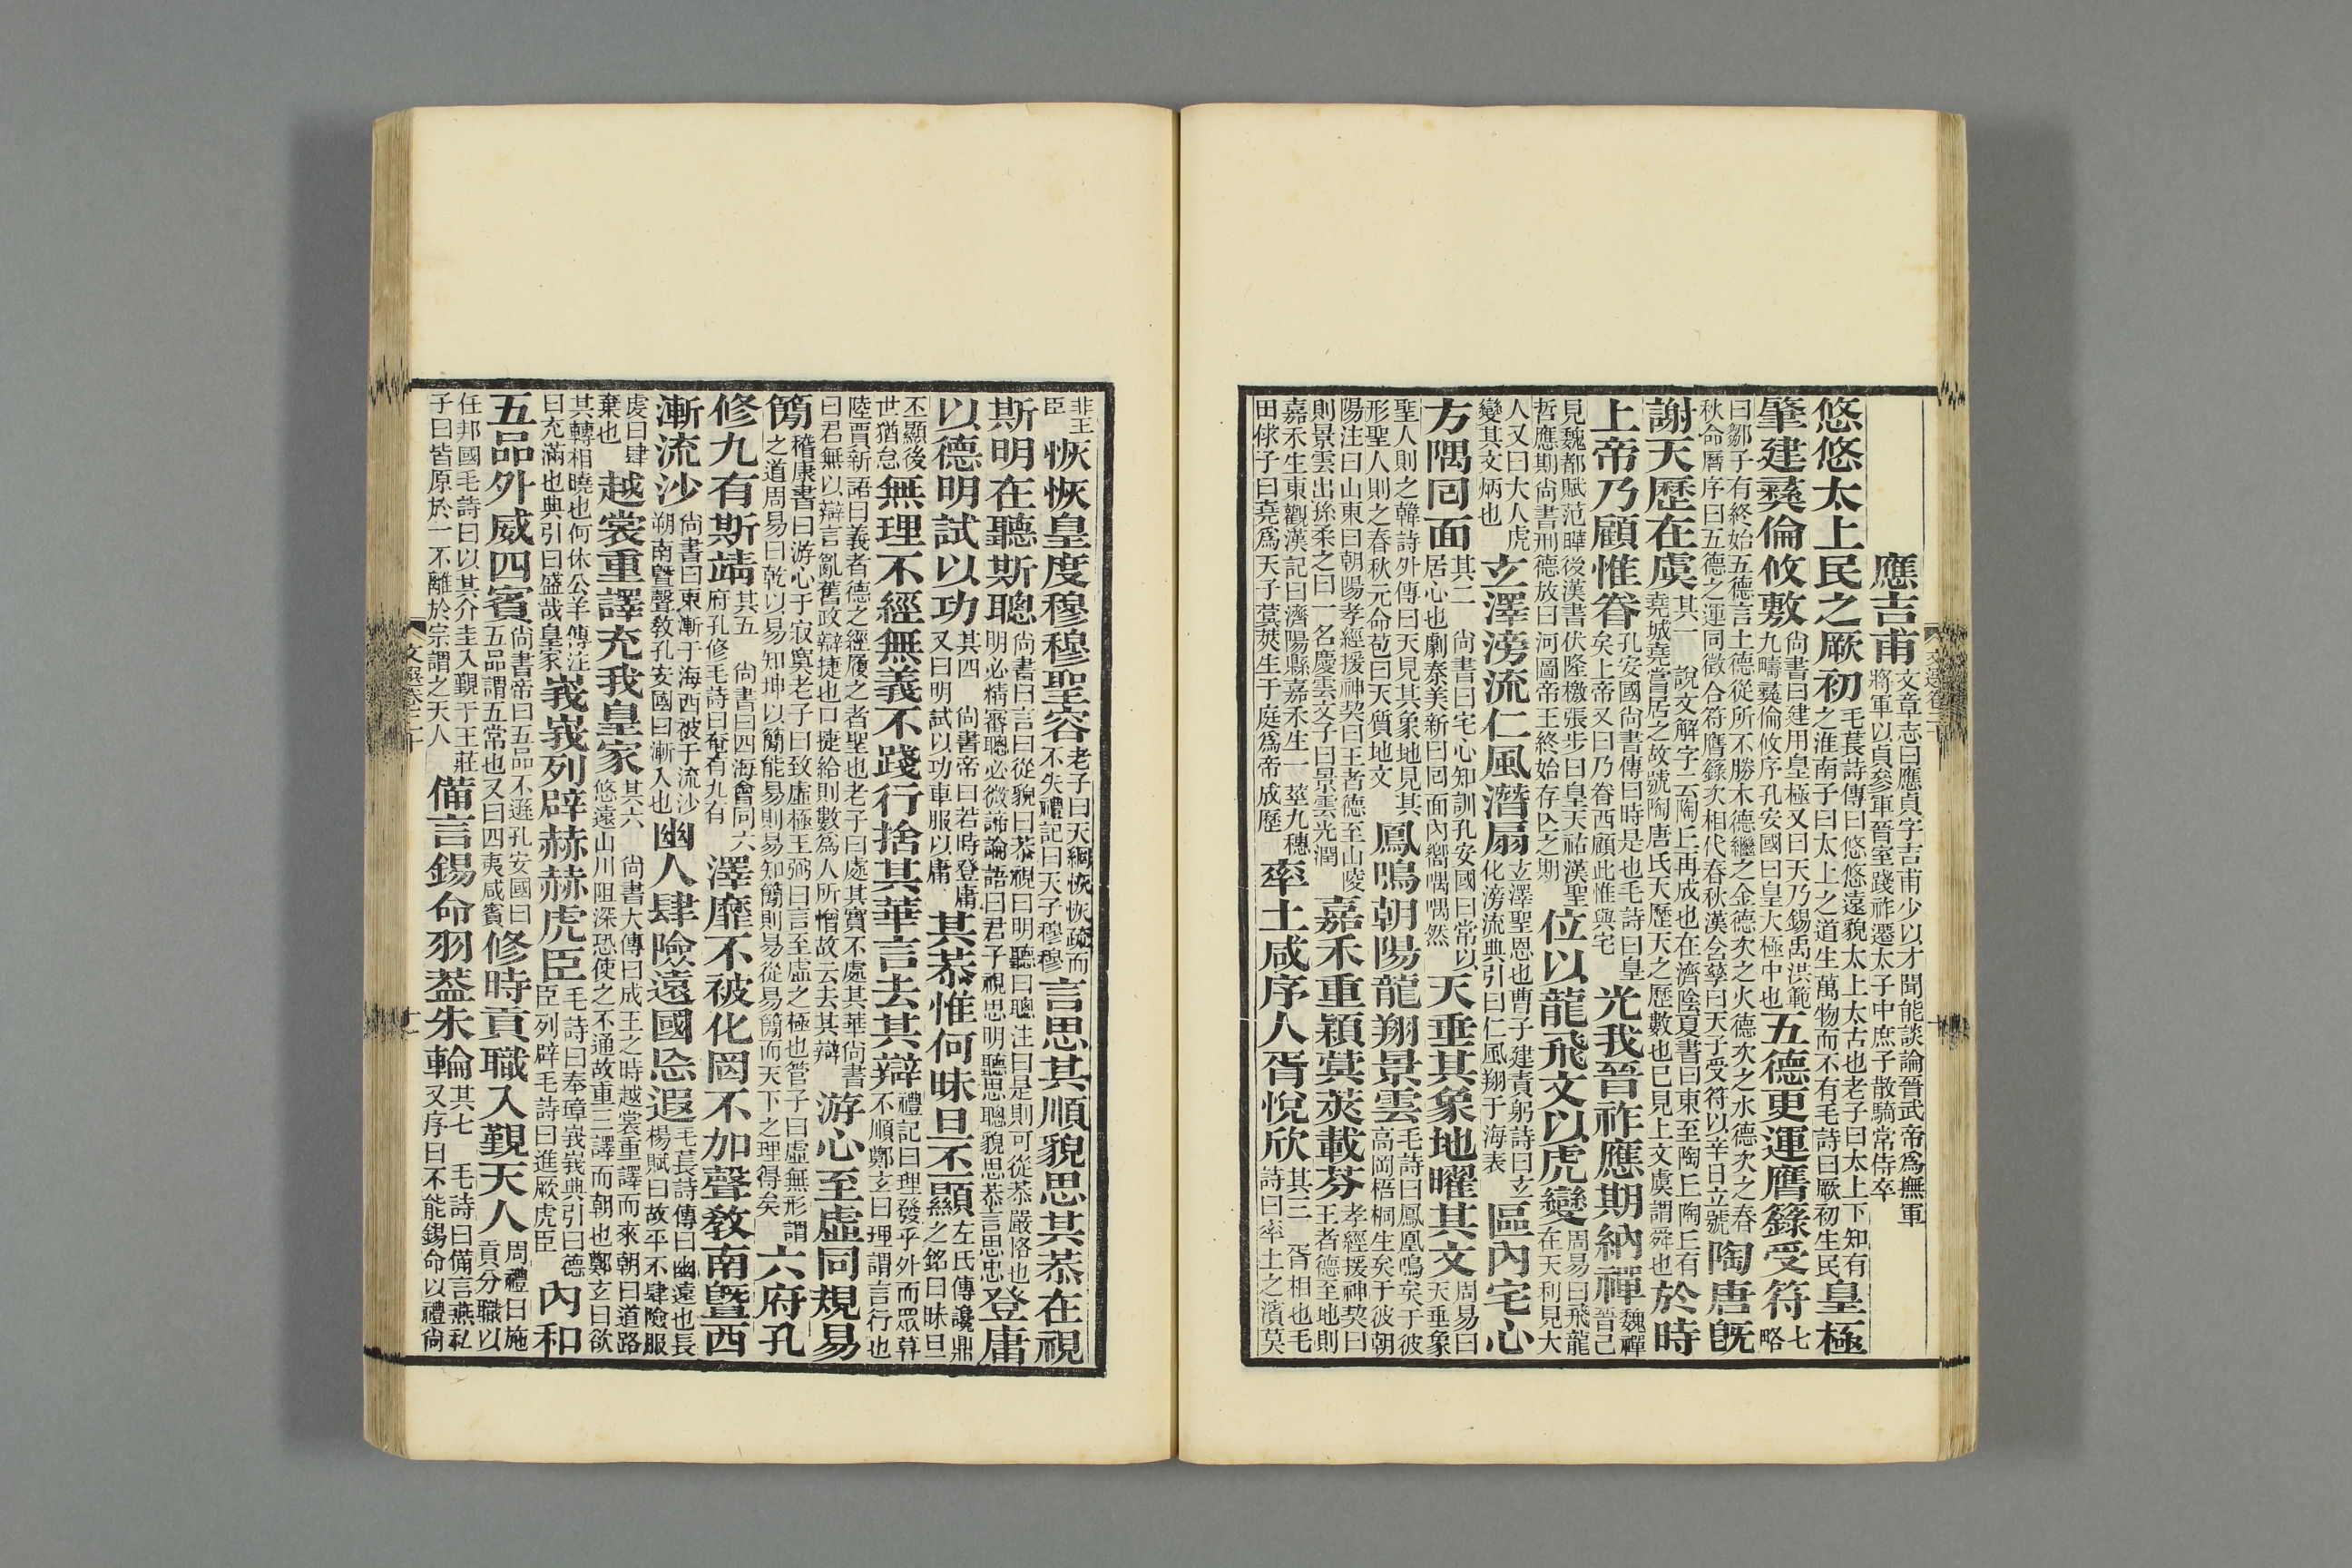 應吉甫文章志曰應貞字吉甫少以才聞能談論晉武帝爲撫軍將軍以貞參軍晉室踐祚遷太子中庶子散騎常侍卒
悠悠太上民之厥初毛萇詩傳曰悠悠遠貌太上太古也老子曰太上下知有之淮南子曰太上之道生萬物而不有毛詩曰厥初生民皇極
肇建彝倫攸敷尚書曰建用皇極又曰天乃錫禹洪範九疇彝倫攸序孔安國曰皇大極中也五德更運膺籙受符七略
曰鄒子有終始五德言土德從所不勝木德繼之金德次之火德次之水德次之春秋命曆序曰五德之運同徵合符膺籙次相代春秋漢含孳曰天子受符以辛日立號陶唐旣
謝天歷在虞其一 說文解字云陶丘再成也在濟陰夏書曰東至陶丘陶丘有堯城堯嘗居之故號陶唐氏天歷天之歷數也已見上文虞謂舜也於時
上帝乃顧惟眷孔安國尚書傳曰時是也毛詩曰皇矣上帝又曰乃眷西顧此惟與宅光我晉祚應期納禪魏禪晉已
見魏都賦范曄後漢書伏隆檄張步曰皇天祐漢聖哲應期尚書刑德放曰河圖帝王終始存亡之期位以龍飛文以虎變周易曰飛龍在天利見大
人又曰大人虎變其文炳也玄澤滂流仁風潛扇玄澤聖恩也曹子建責躬詩曰玄化滂流典引曰仁風翔于海表區內宅心
方隅回面其二 尚書曰宅心知訓孔安國曰常以居心也劇秦美新曰回面內嚮喁喁然天垂其象地曜其文周易曰天垂象
聖人則之韓詩外傳曰天見其象地見其形聖人則之春秋元命苞曰天質地文鳳鳴朝陽龍翔景雲毛詩曰鳳凰鳴矣于彼高岡梧桐生矣于彼朝
陽注曰山東曰朝陽孝經援神契曰王者德至山陵則景雲出孫柔之曰一名慶雲文子曰景雲光潤嘉禾重穎蓂莢載芬孝經援神契曰王者德至地則
嘉禾生東觀漢記曰濟陽縣嘉禾生一莖九穗田俅子曰堯爲天子蓂莢生于庭爲帝成歷率土咸序人胥悅欣其三 胥相也毛詩曰率土之濱莫
非王臣恢恢皇度穆穆聖容老子曰天網恢恢疏而不失禮記曰天子穆穆言思其順貌思其恭在視
斯明在聽斯聰尚書曰言曰從貌曰恭視曰明聽曰聰注曰是則可從恭嚴恪也明必精審聰必微諦論語曰君子視思明聽思聰貌思恭言思忠登庸
以德明試以功其四 尚書帝曰若時登庸又曰明試以功車服以庸其恭惟何昧旦丕顯左氏傳讒鼎之銘曰昧旦
丕顯後世猶怠無理不經無義不踐行捨其華言去其辯禮記曰理發乎外而眾莫不順鄭玄曰理謂言行也
陸賈新語曰義者德之經履之者聖也老子曰處其實不處其華尚書曰君無以辯言亂舊政辯捷也口捷給則數爲人所憎故云去其辯游心至虛同規易
簡嵇康書曰游心于寂寞老子曰致虛極王弼曰言至虛之極也管子曰虛無形謂之道周易曰乾以易知坤以簡能易則易知簡則易從易簡而天下之理得矣六府孔
修九有斯靖其五 尚書曰四海會同六府孔修毛詩曰奄有九有澤靡不被化罔不加聲敎南曁西
漸流沙尚書曰東漸于海西被于流沙朔南曁聲敎孔安國曰漸入也幽人肆險遠國忘遐毛萇詩傳曰幽遠也長楊賦曰故平不肆險服
虔曰肆棄也越裳重譯充我皇家其六 尚書大傳曰成王之時越裳重譯而來朝曰道路悠遠山川阻深恐使之不通故重三譯而朝也鄭玄曰欲
其轉相曉也何休公羊傳注曰充滿也典引曰盛哉皇家峩峩列辟赫赫虎臣毛詩曰奉璋峩峩典引曰德臣列辟毛詩曰進厥虎臣內和
五品外威四賓尚書帝曰五品不遜孔安國曰五品謂五常也又曰四夷咸賓修時貢職入覲天人周禮曰施貢分職以
任邦國毛詩曰以其介圭入覲于王莊子曰皆原於一不離於宗謂之天人備言錫命羽蓋朱輪其七 毛詩曰備言燕私又序曰不能錫命以禮尚
文選卷二十
十一